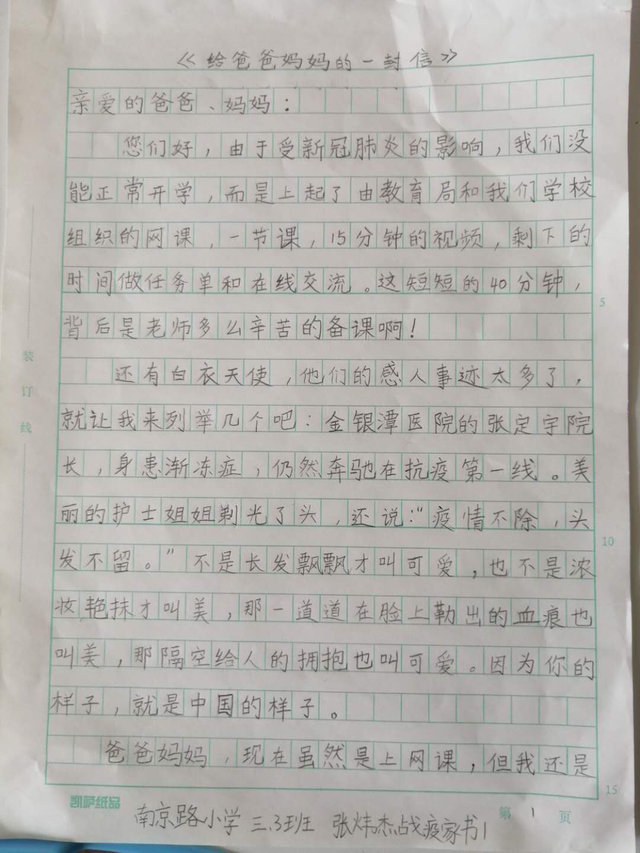 《给爸爸妈妈的一封信》
亲爱的爸爸、妈妈：
您们好，由于受新冠肺炎的影响，我们没
能正常开学，而是上起了由教育局和我们学校
组织的网课，一节课，15分钟的视频，剩下的
时间做任务单和在线交流。这短短的40分钟，
背后是老师多么辛苦的备课啊！
还有白衣天使，他们的感人事迹太多了，
就让我来列举几个吧：金银潭医院的张定宇院
长，身患渐冻症，仍然奔驰在抗疫第一线。美
丽的护士姐姐剃光了头，还说：“疫情不除，头
发不留。”不是长发飘飘才叫可爱，也不是浓
妆艳抹才叫美，那一道道在脸上勒出的血痕也
叫美，那隔空给人的拥抱也叫可爱。因为你的
样子，就是中国的样子。
爸爸妈妈，现在虽然是上网课，但我还是
装订线
5
10
15
凯萨纸品
第 1 页
南京路小学 三.3班 张炜杰战疫家书1